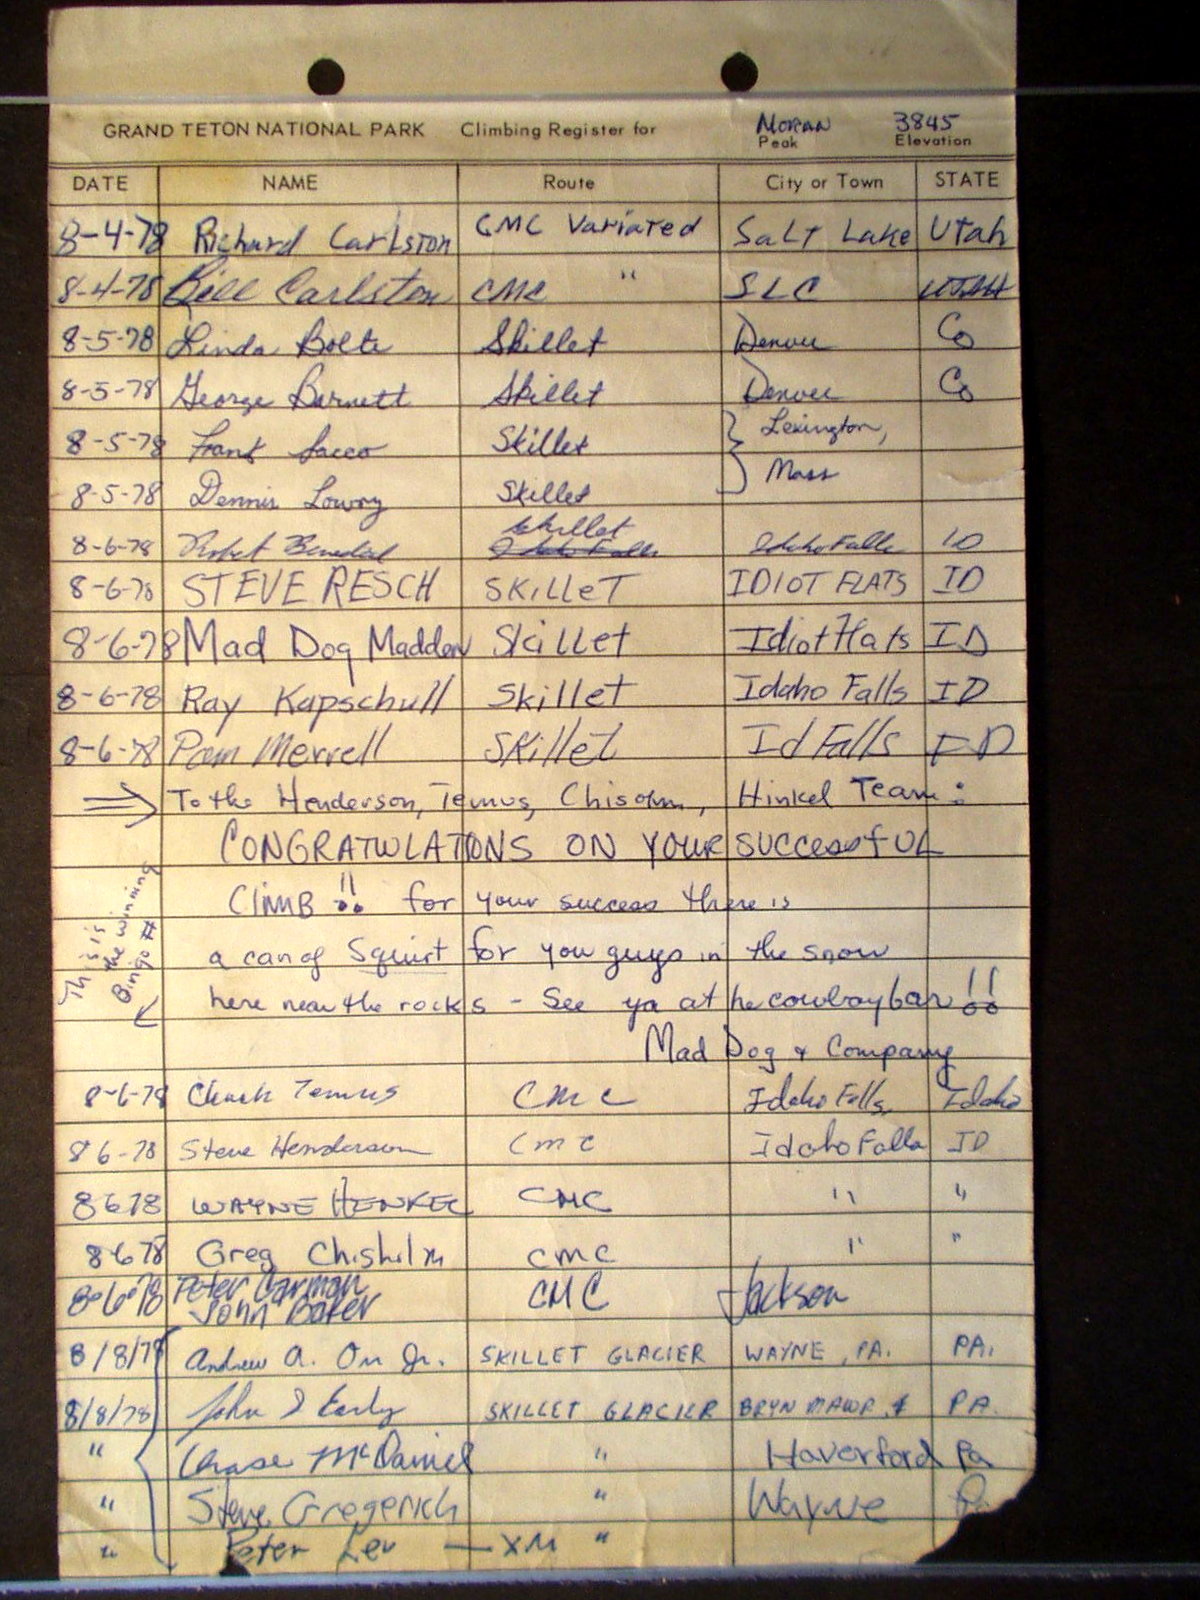 GRAND TETON NATIONAL PARK Climbing Register for MORAN Peak 3845 Elevation
DATE NAME Route City or Town STATE
8-4-78 Richard Carlston CMC Variated Salt Lake Utah
8-4-78 Bill Carlston CMC " SLC UTAH
8-5-78 Linda Bolte Skillet Denver Co
8-5-78 George Barnett Skillet Denver Co
8-5-78 Frank Sacco Skillet Lexington,
8-5-78 Dennis Lowry Skillet Mass
Skillet
8-6-78 Robert Idaho Falls Idaho Falls ID
8-6-78 STEVE RESCH SKilleT IDIOT FLATS ID
8-6-78 Mad Dog Madden Skillet Idiot Flats ID
8-6-78 Ray Kapschull Skillet Idaho Falls ID
8-6-78 Pam Merrell SKillet Id Falls ID
⇒ To the Henderson, Temus, Chisolm, Hinkel Team:
CONGRATULATIONS ON YOUR SUCCessfUL
CLIMB !! for your success there is
a can of Squirt for you guys in the snow
here near the rocks - See ya at he cowboy bar !!
Mad Dog & Company
This is
the winning
Bingo #
8-6-78 Chuck Temus CMC Idaho Falls, Idaho
8 6-78 Steve Henderson CMC Idaho Falls ID
8 6 78 WAYNE HENKEL CMC " "
8 6 78 Greg Chisholm CMC " "
8-6-78 Peter Carman CMC Jackson
John Baker
8/8/78 Andrew A. Orr Jr. SKILLET GLACIER WAYNE, PA. PA.
8/8/78 John Early SKILLET GLACIER BRYN MAWR PA
" Chase McDaniel " Haverford Pa
" Steve Gregerich " Wayne Pa
" Peter Lev — XM "